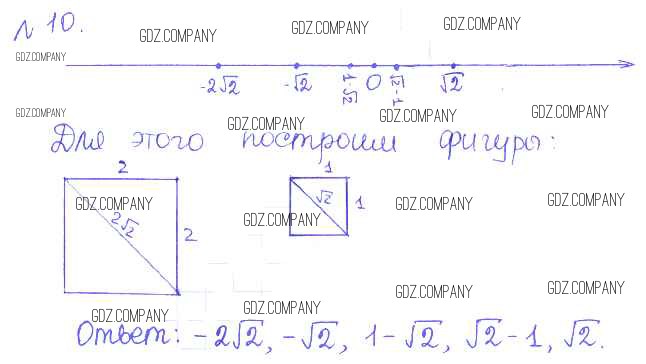 № 10.
GDZ.COMPANY GDZ.COMPANY GDZ.COMPANY
GDZ.COMPANY
-2√2 -√2 1-√2 0 √2-1 √2
GDZ.COMPANY GDZ.COMPANY GDZ.COMPANY GDZ.COMPANY
Для этого построим фигуры:
2 1
GDZ.COMPANY 2√2 2 GDZ.COMPANY √2 1 GDZ.COMPANY GDZ.COMPANY
GDZ.COMPANY GDZ.COMPANY GDZ.COMPANY GDZ.COMPANY
Ответ: -2√2, -√2, 1-√2, √2-1, √2.